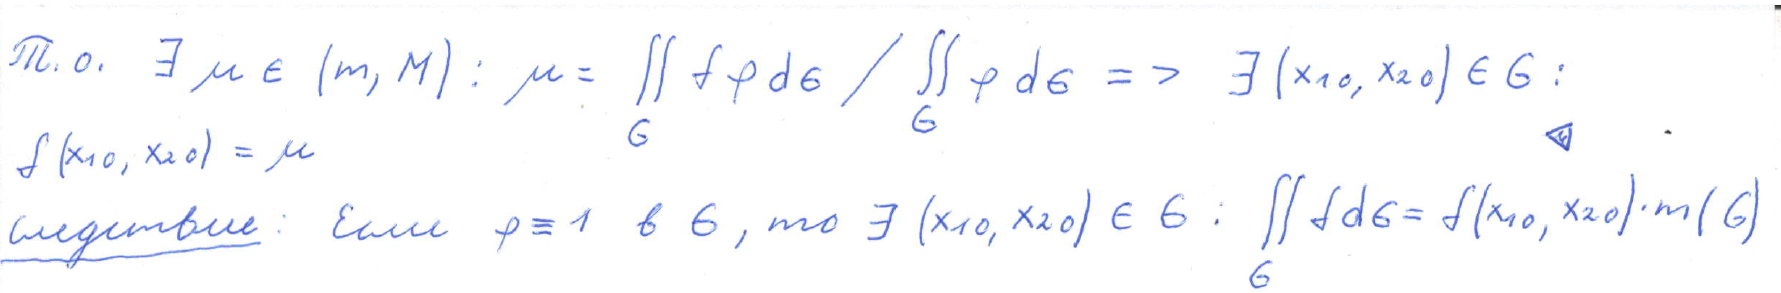 Т.о. ∃ μ ∈ (m, M) : μ = ∬_G f φ dσ / ∬_G φ dσ => ∃ (x₁₀, x₂₀) ∈ G :
f(x₁₀, x₂₀) = μ ◁
следствие: Если φ ≡ 1 в G, то ∃ (x₁₀, x₂₀) ∈ G : ∬_G f dσ = f(x₁₀, x₂₀)·m(G)